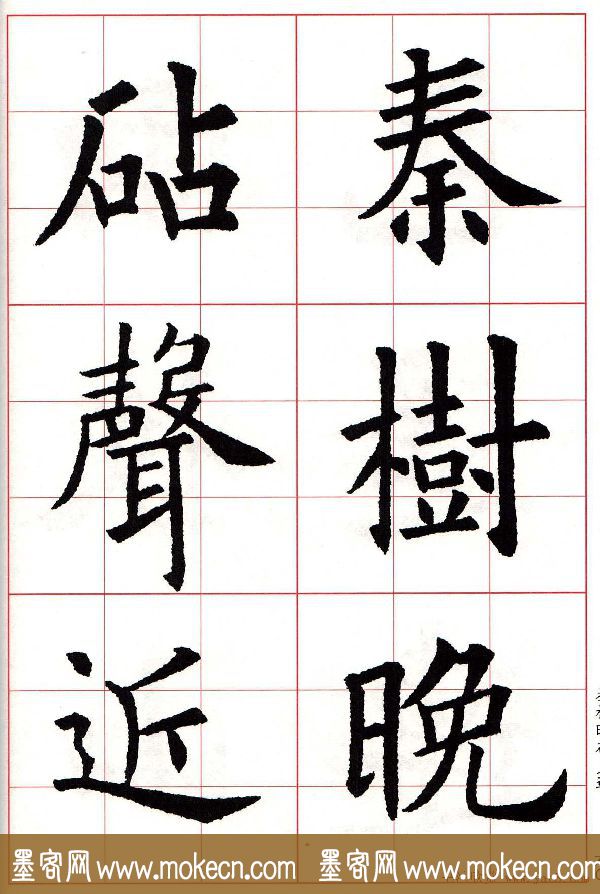 秦樹晚
砧聲近
墨客网 www.mokecn.com 墨客网 www.mokecn.com